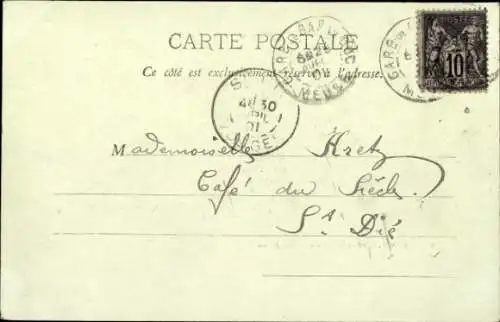 CARTE POSTALE
Ce côté est exclusivement réservé à l'adresse.
POSTES
10
GARE
MEUSE
GARE
30
01
Mademoiselle Kretz
Café du Siècle
St Dié